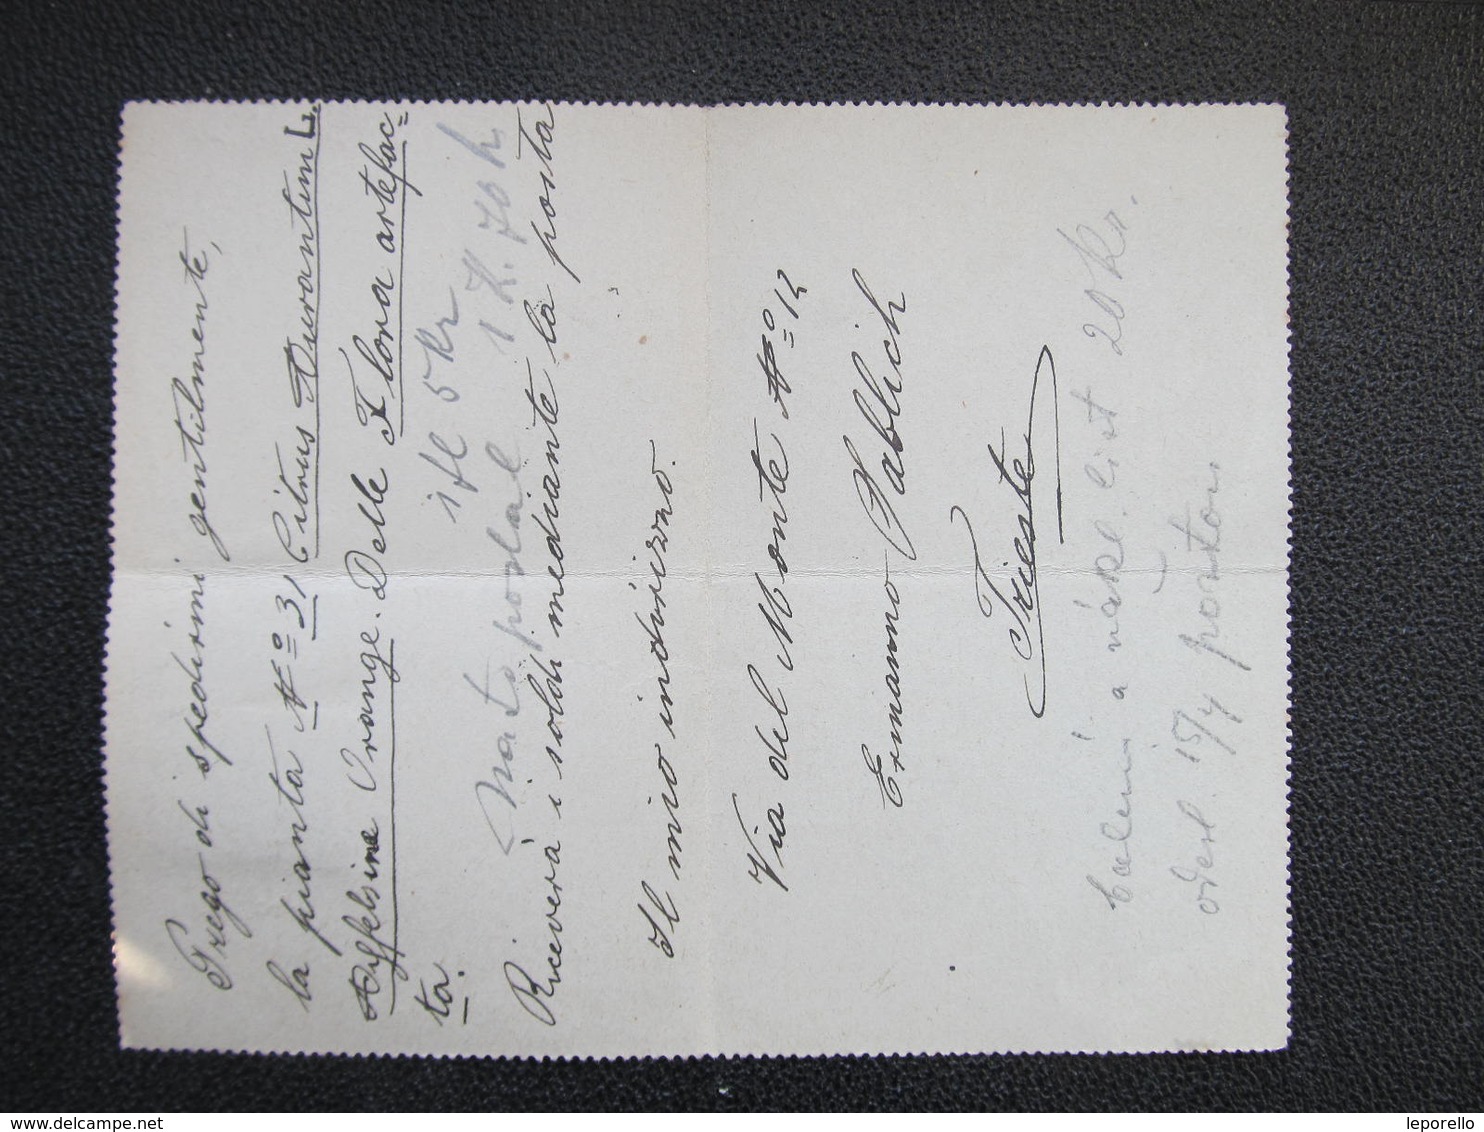 Prego di spedirmi gentilmente,
la pianta No 3, Citrus Aurantium L.
Apfelsine Orange. Delle Flora artefac=
ta.
1 fl 5 kr
Na to poslal 1 K. 70 h.
Riceverà i soldi mediante la posta
Il mio indirizzo.
Via del Monte No 12
Ermanno Sablich
Trieste
balení a nákl. list 20 kr.
odesl. 15/4 poštou
leporello